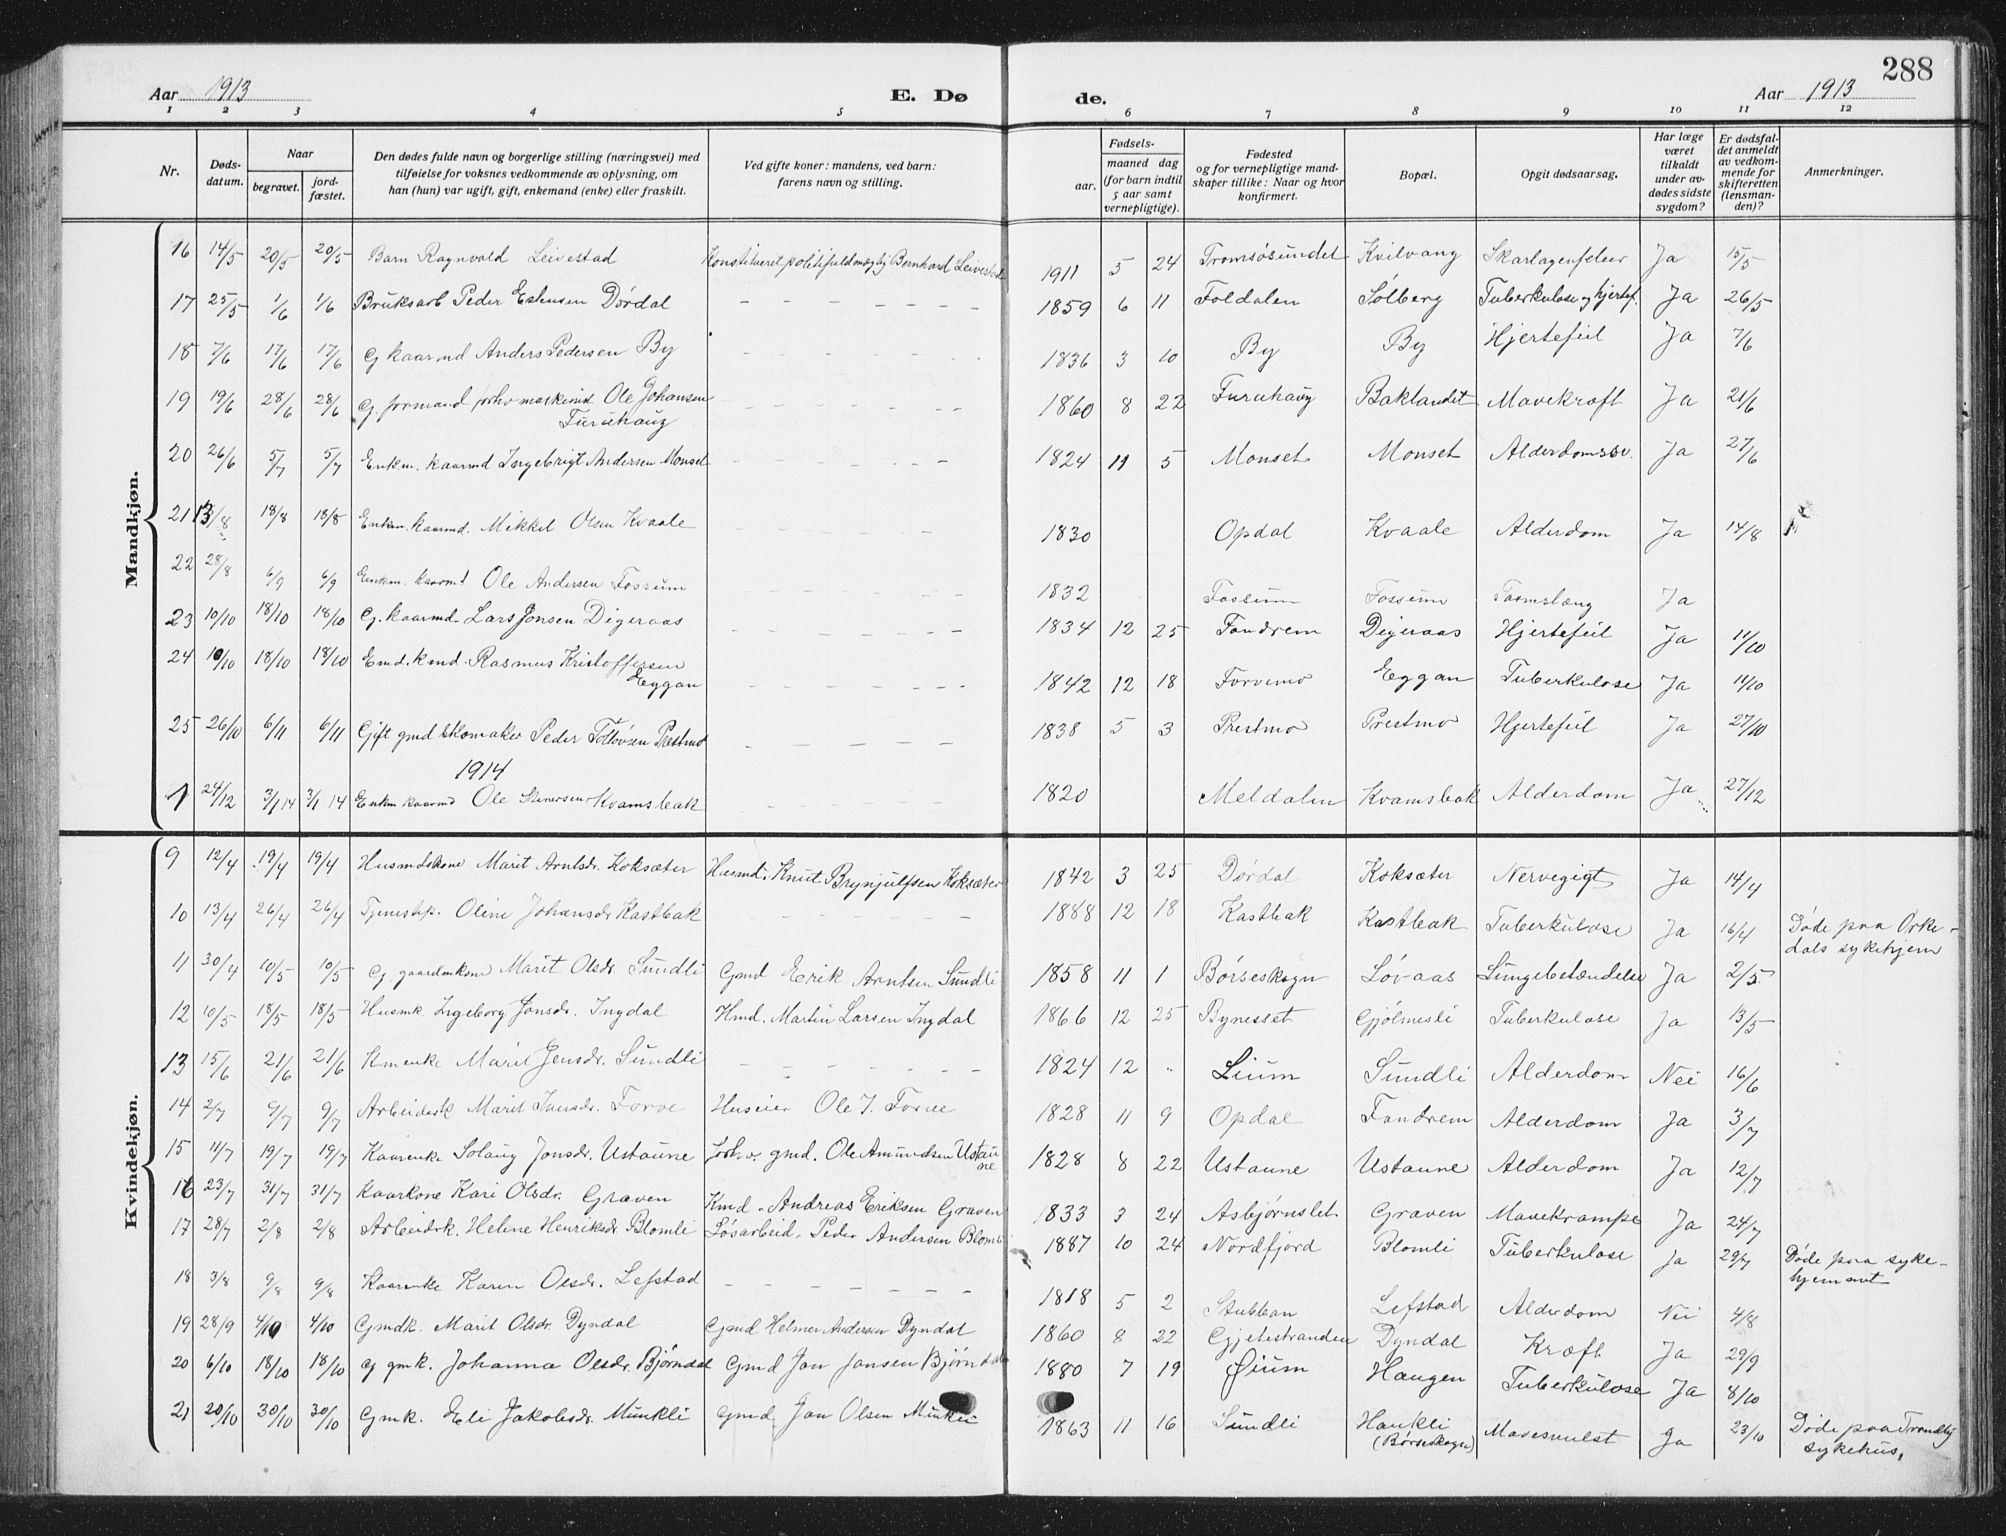 288
Aar 1913 E. Dø de. Aar 1913
1 2 3 4 5 6 7 8 9 10 11 12
Nr. Dødsdatum. Naar begravet. jordfæstet. Den dødes fulde navn og borgerlige stilling (næringsvei) med tilføielse for voksnes vedkommende av oplysning, om han (hun) var ugift, gift, enkemand (enke) eller fraskilt. Ved gifte koner: mandens, ved barn: farens navn og stilling. Fødsels- aar. maaned dag (for barn indtil 5 aar samt vernepligtige). Fødested og for vernepligtige mandskaper tillike: Naar og hvor konfirmert. Bopæl. Opgit dødsaarsag. Har læge været tilkaldt under avdødes sidste sygdom? Er dødsfaldet anmeldt av vedkommende for skifteretten (lensmanden)? Anmerkninger.
Mandkjøn.
16 14/5 20/5 20/5 Barn Ragnvald Leivestad Konstitueret politifuldmægtig Bernhard Leivestad 1911 5 24 Tromsøsundet Kvilvang Skarlagensfeber Ja 15/5
17 25/5 1/6 1/6 Bruksarb Peder Estensen Dørdal 1859 6 11 Foldalen Solberg Tuberkulose og hjertef. Ja 26/5
18 7/6 17/6 17/6 G kaarmd Anders Pedersen By 1836 3 10 By By Hjertefeil Ja 7/6
19 19/6 28/6 28/6 G. formand forhv maskinist Ole Johansen Furuhaug 1860 8 22 Furuhaug Baklandet Mavekræft Ja 21/6
20 26/6 5/7 5/7 Enkm. kaarmd Ingebrigt Andersen Monset 1824 11 5 Monset Monset Alderdomssv. Ja 27/6
21 13/8 18/8 18/8 Enkm. kaarmd. Mikkel Olsen Kvaale 1830 Opdal Kvaale Alderdom Ja 14/8
22 28/8 6/9 6/9 Enkm. kaarmd Ole Andersen Fossum 1832 Fossum Fossum Ja
23 10/10 18/10 18/10 G. kaarmd Lars Jonsen Digeraas 1834 12 25 Fandrem Digeraas Hjertefeil Ja 11/10
24 10/10 18/10 18/10 Emd. kmd. Rasmus Kristoffersen Eggan 1842 12 18 Forvemo Eggan Tuberkulose Ja 11/10
25 26/10 6/11 6/11 Gift gmd skomaker Peder Tostovsen Prestmo 1838 5 3 Prestmo Prestmo Hjertefeil Ja 27/10
1914
1 24/12 3/1 14 3/1 14 Enkm kaarmd Ole Steinersen Kvamsbak 1820 Meldalen Kvamsbak Alderdom Ja 27/12
Kvindekjøn.
9 12/4 19/4 19/4 Husmdskone Marit Arntsdr. Koksæter Husmd. Knut Brynjulfsen Koksæter 1842 3 25 Dørdal Koksæter Nervegigt Ja 14/4
10 13/4 26/4 26/4 Tjenestep. Oline Johansdr Kastbak 1888 12 18 Kastbak Kastbak Tuberkulose Ja 16/4 Døde paa Orkedals sykehjem
11 30/4 10/5 10/5 G. gaardmkone Marit Olsdr. Sundli Gmd Erik Arntsen Sundli 1858 11 1 Børseskogn Løvaas Lungebetændelse Ja 2/5
12 10/5 18/5 18/5 Husmk. Ingeborg Jonsdr. Ingdal Hmd. Martin Larsen Ingdal 1866 12 25 Bynesset Gjølmesli Tuberkulose Ja 13/5
13 15/6 21/6 21/6 Kmenke Marit Jensdr. Sundli 1824 12 " Lium Sundli Alderdom Nei 16/6
14 2/7 9/7 9/7 Arbeiderk Marit Iversdr. Forve Huseier Ole J. Forve 1828 11 9 Opdal Fandrem Alderdom Ja 3/7
15 11/7 19/7 19/7 Kaarenke Solaug Jonsdr. Ustaune forhv. gmd. Ole Amundsen Ustaune 1828 8 22 Ustaune Ustaune Alderdom Ja 12/7
16 23/7 31/7 31/7 kaarkone Kari Olsdr. Graven Kmd. Andreas Eriksen Graven 1833 3 24 Asbjørnslet Graven Mavekrampe Ja 24/7
17 28/7 2/8 2/8 Arbeiderk. Helene Henriksdr Blomli Løsarbeid. Peder Andersen Blomli 1887 10 24 Nordfjord Blomli Tuberkulose Ja 29/7 Døde paa sykehjemmet
18 3/8 9/8 9/8 Kaarenke Karen Olsdr. Lefstad 1818 5 2 Stubban Lefstad Alderdom Nei 4/8
19 28/9 4/10 4/10 Gmdk. Marit Olsdr. Dyndal Gmd Helmer Andersen Dyndal 1860 8 22 Gjetestranden Dyndal Kræft Ja 29/9
20 6/10 18/10 18/10 G gmk. Johanna Olsdr. Bjørndal Gmd Jon Jonsen Bjørndal 1880 7 19 Øium Haugen Tuberkulose Ja 8/10
21 20/10 30/10 30/10 Gmk. Eli Jakobsdr. Munkli Gmd Jon Olsen Munkli 1863 11 16 Sundli Haukli (Børseskogn) Mavesvulst Ja 23/10 Døde paa Trondhj sykehus.